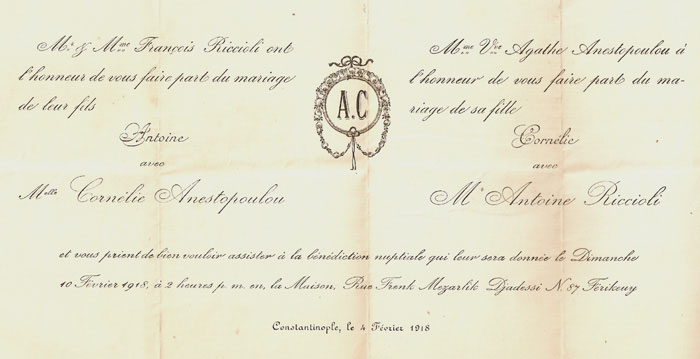 Mr & Mme François Riccioli ont
l'honneur de vous faire part du mariage
de leur fils
Antoine
avec
Mlle Cornélie Anestopoulou
A.C
Mme Vve Agathe Anestopoulou à
l'honneur de vous faire part du ma-
riage de sa fille
Cornélie
avec
Mr Antoine Riccioli
et vous prient de bien vouloir assister à la bénédiction nuptiale qui leur sera donnée le Dimanche
10 Février 1918, à 2 heures p. m. en, la Maison, Rue Frenk Mezarlik Djadessi N. 87 Férikeuy
Constantinople, le 4 Février 1918